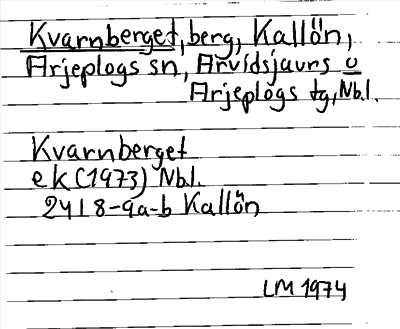 Kvarnberget, berg, Kallön,
Arjeplogs sn, Arvidsjaurs o
Arjeplogs tg, Nb.l.
Kvarnberget
ek (1973) Nb.l.
241 8-9a-b Kallön
LM 1974